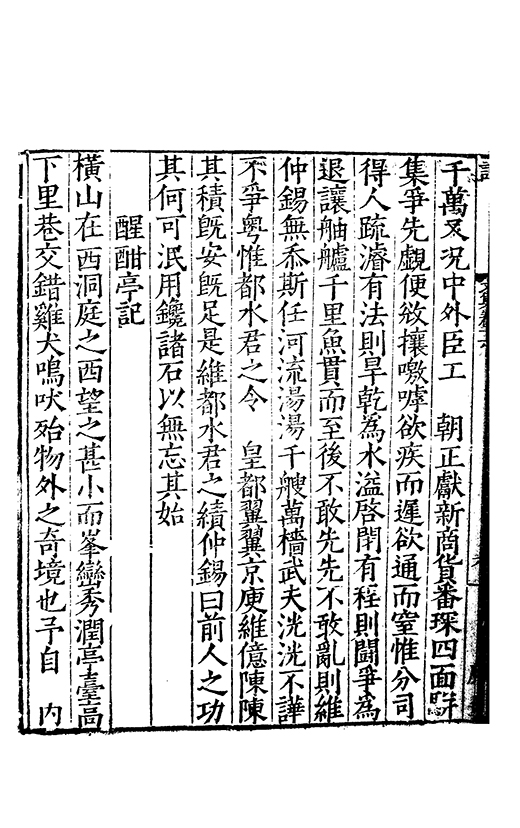 千萬又况中外臣工　朝正獻新商貨番琛四面畢
集爭先覷便紛攘噭嘑欲疾而遲欲通而窒惟分司
得人疏濬有法則旱乾為水溢啓閉有程則鬪爭為
退讓舳艫千里魚貫而至後不敢先先不敢亂則維
仲錫無忝斯任河流湯湯千艘萬檣武夫洸洸不譁
不爭粤惟都水君之令　皇都翼翼京庾維億陳陳
其積旣安旣足是維都水君之績仲錫曰前人之功
其何可泯用鑱諸石以無忘其始
醒酣亭記
橫山在西洞庭之西望之甚小而峯巒秀潤亭臺高
下里巷交錯雞犬鳴吠殆物外之奇境也予自　內